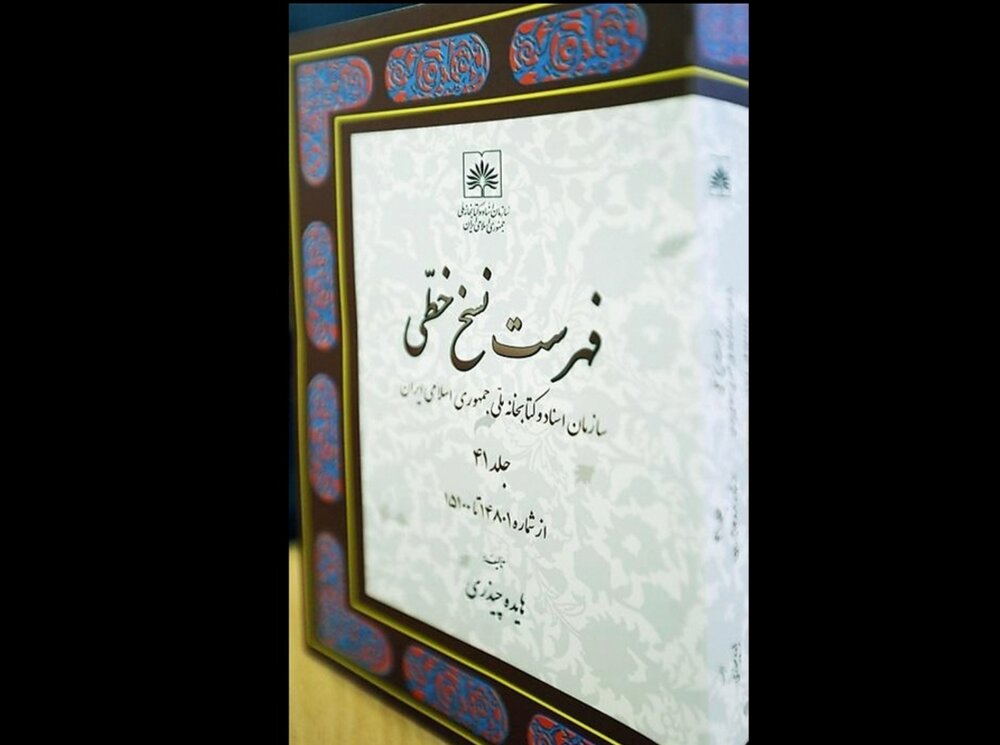 سازمان اسناد و کتابخانه ملی
جمهوری اسلامی ایران
فهرست نسخ خطّی
سازمان اسناد و کتابخانه ملّی جمهوری اسلامی ایران
جلد ۴۱
از شماره ۱۴۸۰۱ تا ۱۵۱۰۰
تألیف:
هایده چیذری